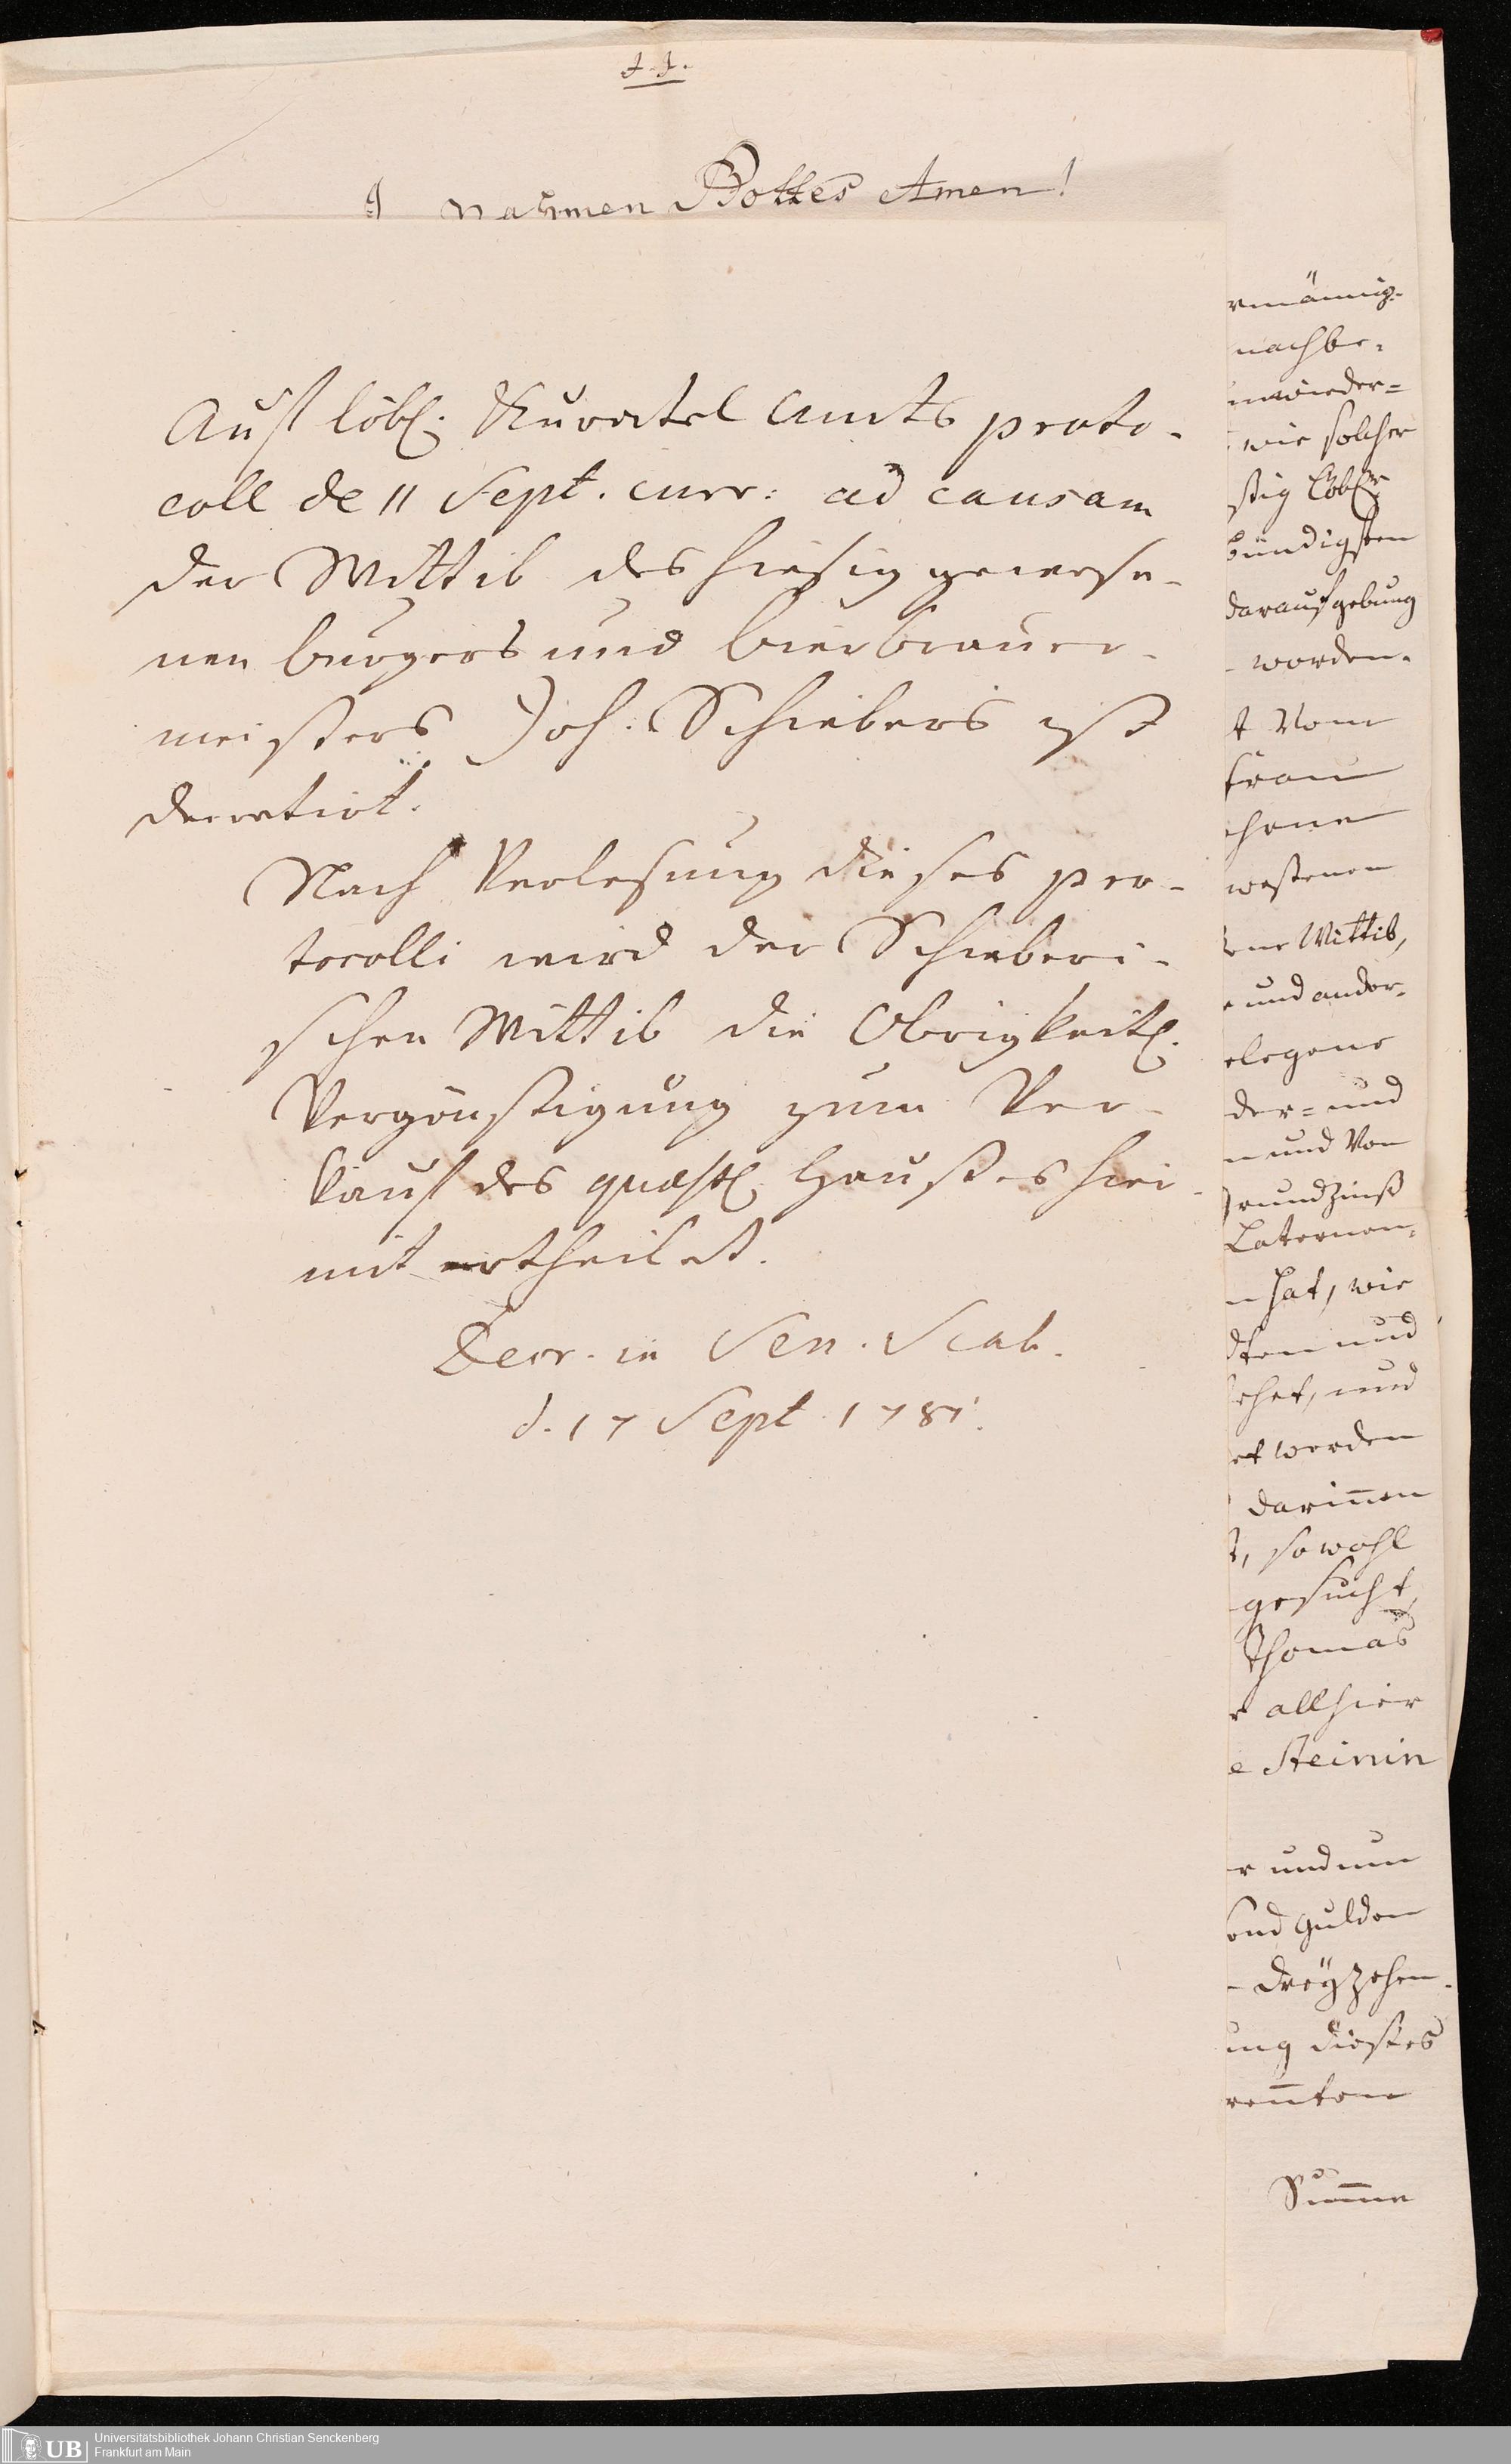 J. J.
I Nahmen Gottes Amen!
Auf löbl. Curatel Amts proto-
coll de 11 Sept. curr: ad causam
der Wittib des hiesig gewese-
nen burgers und bierbrauer-
meisters Joh: Schiebers ist
decretirt.
Nach Verlesung dieses pro-
tocolli wird der Schieberi-
schen Wittib die Obrigkeitl.
Vergönstigung zum Ver-
kauf des quæstl. Haußes hier-
mit ertheilet.
Decr. in Sen. Scab.
d. 17 Sept 1781.
rmännig-
nachbe-
nwieder-
wie solcher
stig Löbl.
bündigsten
daraufgebung
worden.
t Vom
frau
chene
weßenen
ene Wittib,
e und ander-
elegene
der- und
n und Von
rundzinß
Laternen-
n hat, wie
dten und
ehet, und
et werden
darinnen
t, sowohl
gesucht,
Thomas
r allhier
e Steinin
r und um
send Gulden
- dreÿzehen-
ung dießes
rennten
Summe
Universitätsbibliothek Johann Christian Senckenberg
Frankfurt am Main
UB